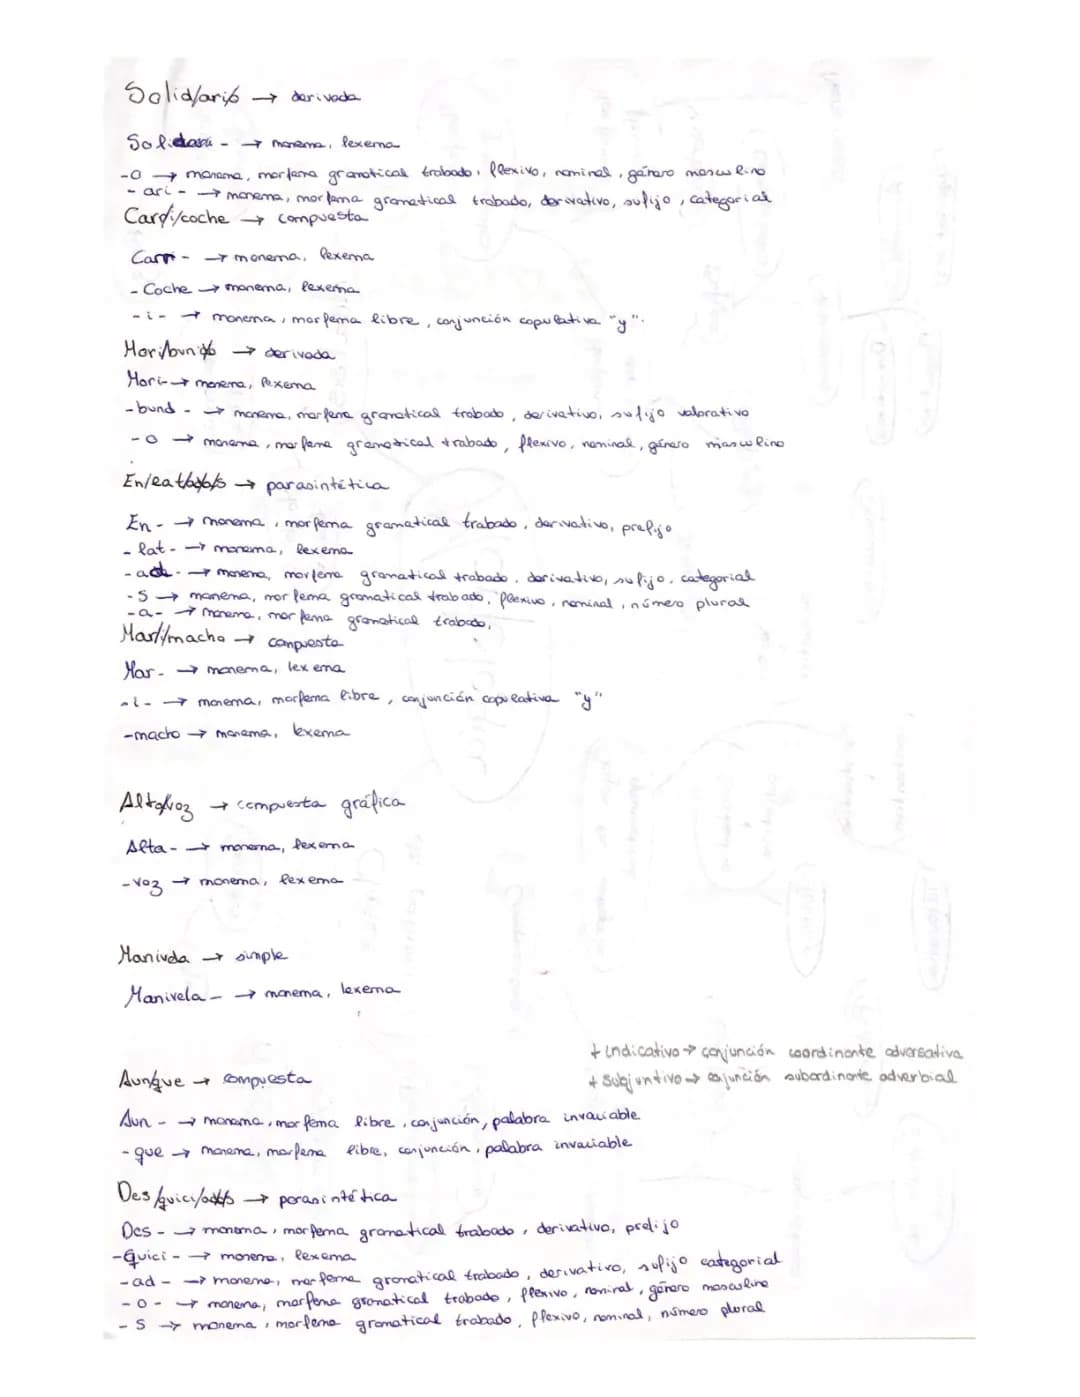 Solid/ari/o → derivada
Solidari - → monema, lexema
-o → monema, morfema gramatical trabado, flexivo, nominal, género masculino
- ari - → monema, morfema gramatical trabado, derivativo, sufijo, categorial
Carr/i/coche → compuesta
Carr - → monema, lexema
- Coche → monema, lexema
- i - → monema, morfema libre, conjunción copulativa "y".
Mori/bund/o → derivada
Mori- → monema, lexema
-bund - → monema, morfema gramatical trabado, derivativo, sufijo valorativo
- o → monema, morfema gramatical trabado, flexivo, nominal, género masculino
En/lat/ad/a/s → parasintética
En - → monema, morfema gramatical trabado, derivativo, prefijo
- lat - → monema, lexema
- ad - → monema, morfema gramatical trabado, derivativo, sufijo, categorial
- S → monema, morfema gramatical trabado, flexivo, nominal, número plural
- a - → monema, morfema gramatical trabado,
Mar/i/macho → compuesta
Mar - → monema, lexema
- i - → monema, morfema libre, conjunción copulativa "y"
-macho → monema, lexema
Alta/voz → compuesta gráfica
Alta - → monema, lexema
- voz → monema, lexema
Manivela → simple
Manivela - → monema, lexema
+ indicativo → conjunción coordinante adversativa
Aun/que → compuesta
+ subjuntivo → conjunción subordinante adverbial
Aun - → monema, morfema libre, conjunción, palabra invariable
- que → monema, morfema libre, conjunción, palabra invariable
Des/quici/ad/o/s → parasintética
Des - → monema, morfema gramatical trabado, derivativo, prefijo
-Quici - → monema, lexema
- ad - → monema, morfema gramatical trabado, derivativo, sufijo categorial
- o - → monema, morfema gramatical trabado, flexivo, nominal, género masculino
- S → monema, morfema gramatical trabado, flexivo, nominal, número plural